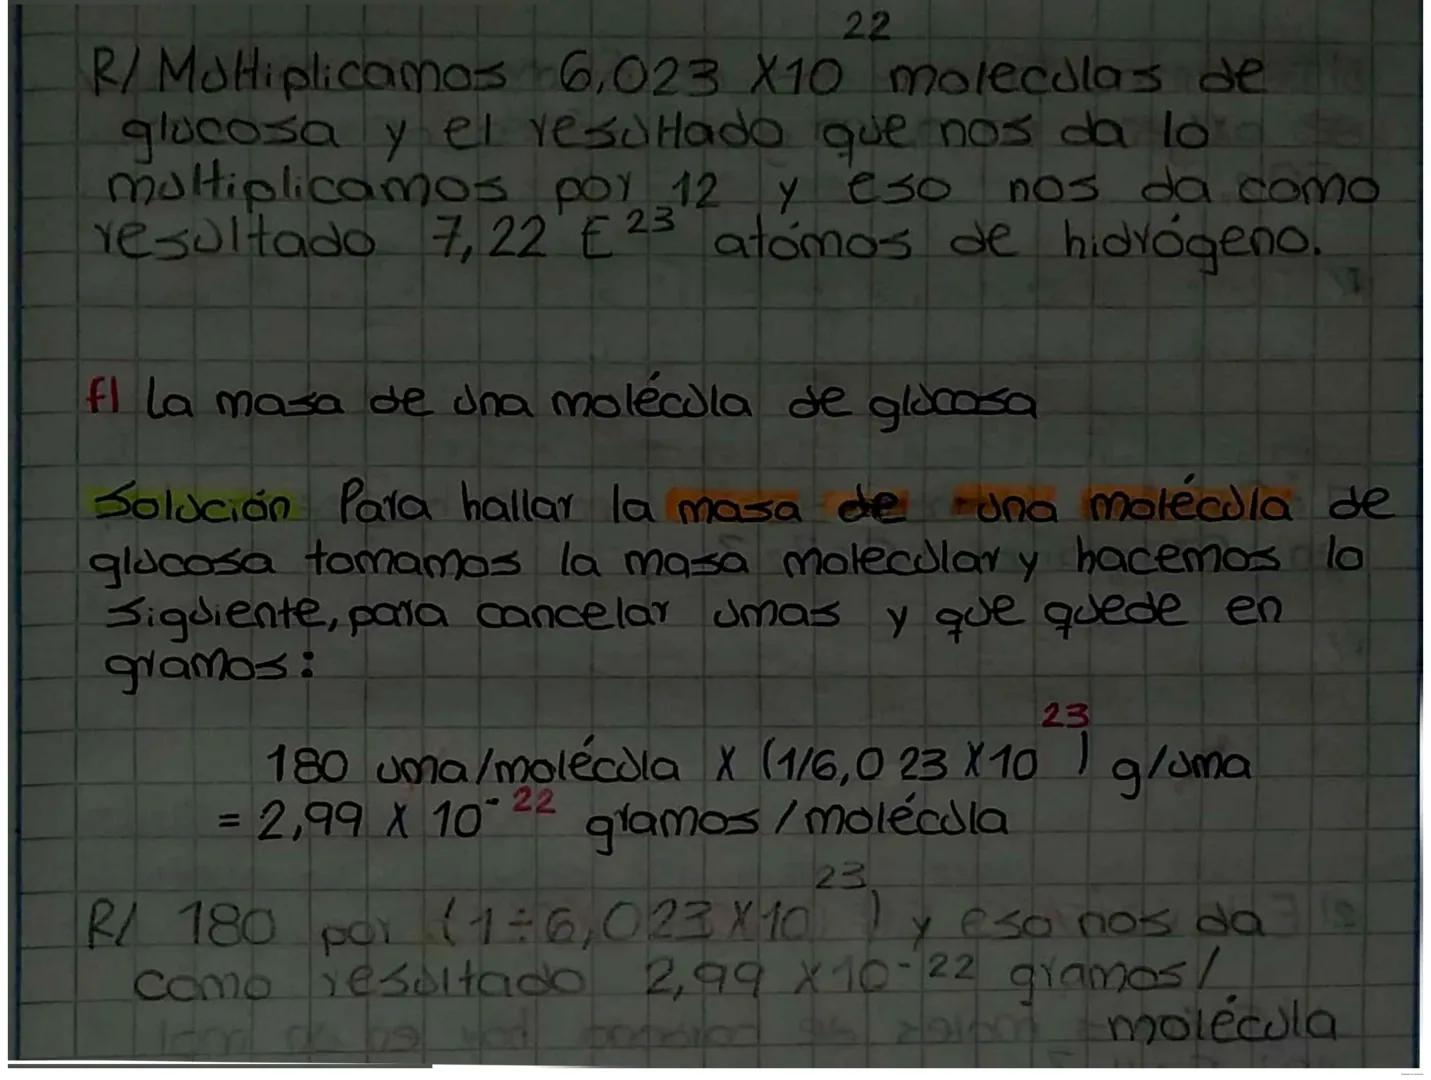 R/ Multiplicamos 6,023 X10²² moleculas de
glucosa y el resultado que nos da lo
multiplicamos por 12 y eso nos da como
resultado 7,22 E²³ atómos de hidrógeno.
f) la masa de una molécula de glucosa
Solución Para hallar la masa de una molécula de
glucosa tomamos la masa molecular y hacemos lo
siguiente, para cancelar umas y que quede en
gramos:
180 uma/molécula X (1/6,023 X 10²³) g/uma
= 2,99 X 10⁻²² gramos/molécula
R/ 180 por (1÷6,023 X 10²³) y eso nos da
como resultado 2,99 X10⁻²² gramos/
molécula